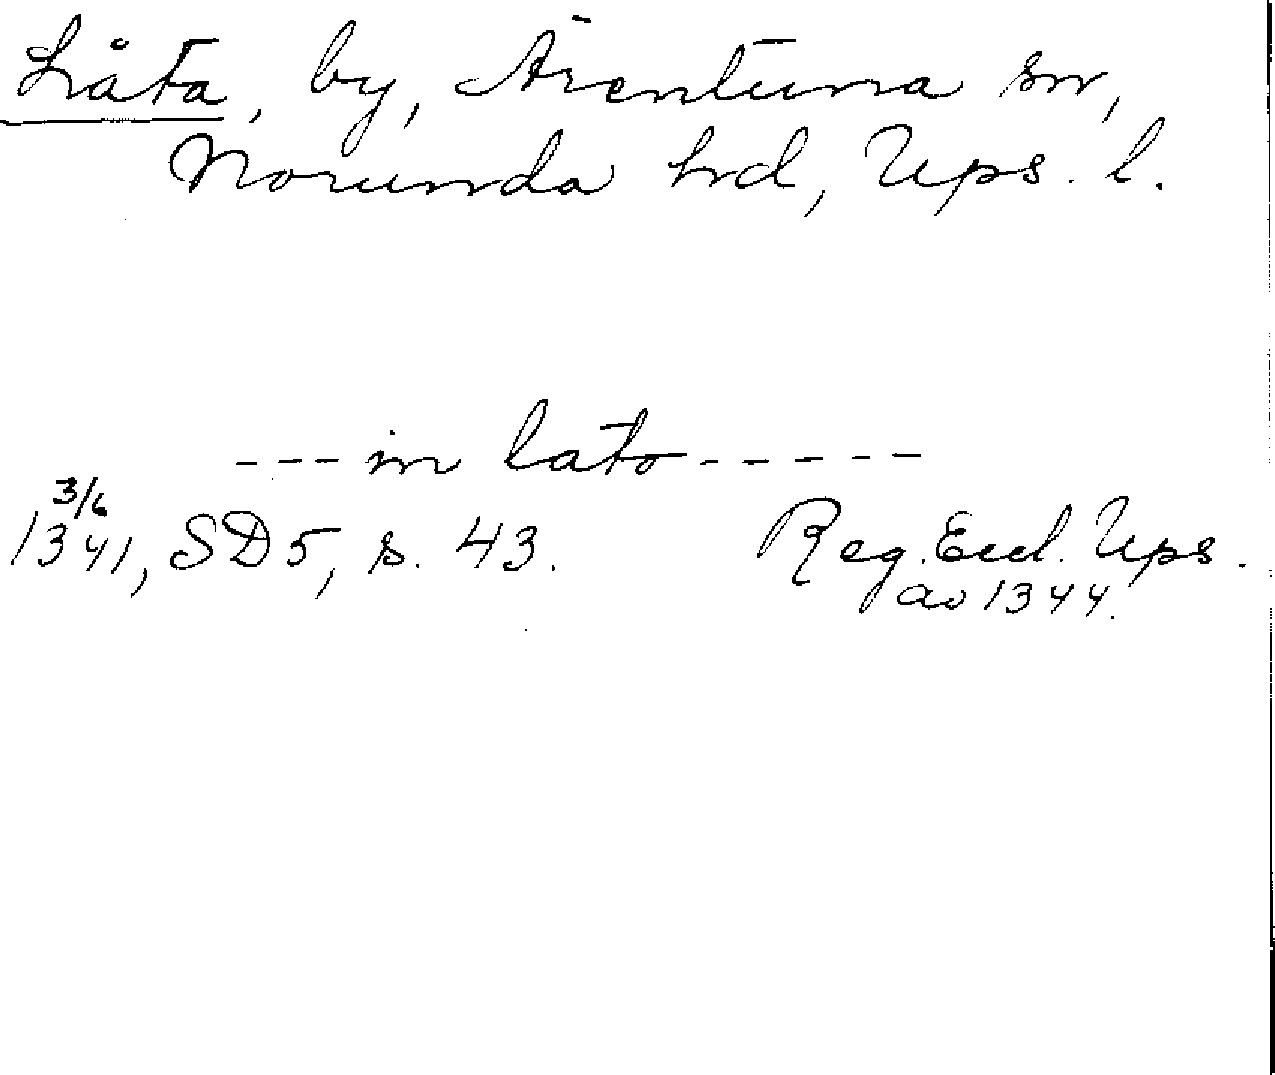 Låta, by, Ärentuna sn,
Norunda hd, Ups. l.
---in lato-----
3/6
1341, SD5, s. 43. Reg. Eccl. Ups.
av 1344.